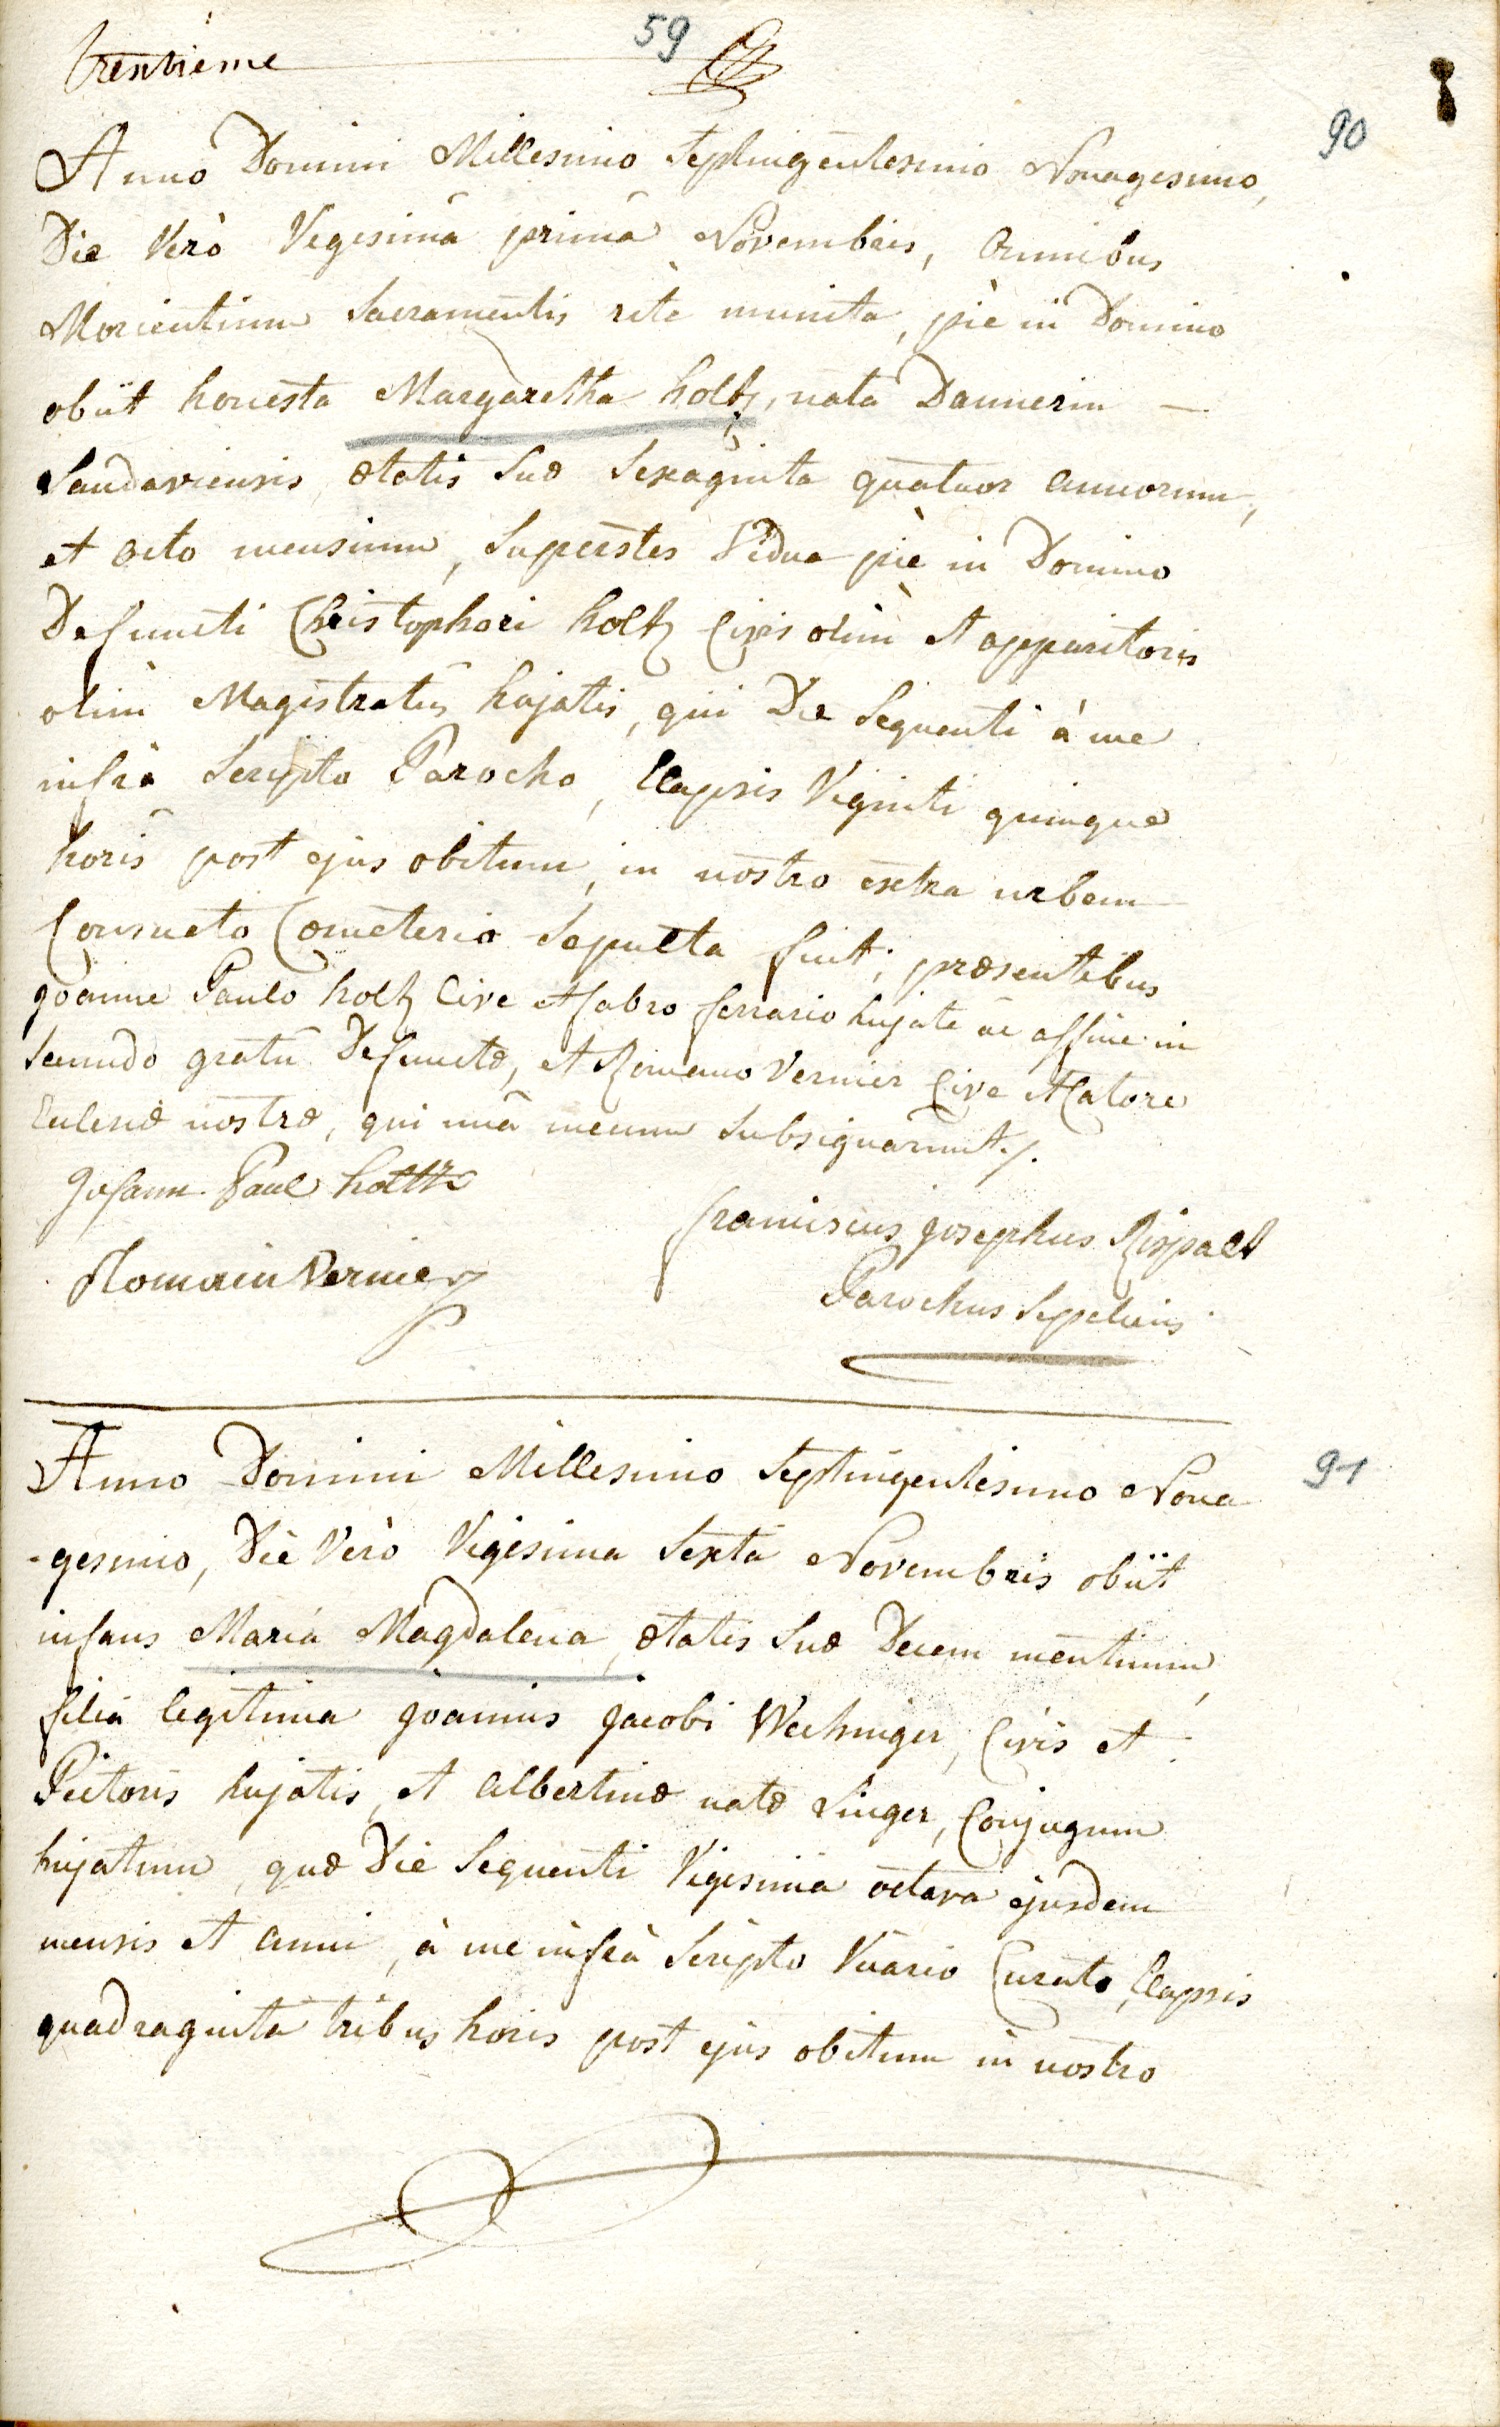 trentième
59
90
Anno Domini Millesimo Septingentesimo Nonagesimo,
Die Verò Vigesimâ primâ Novembris, omnibus
Morientium Sacramentis ritè munita, piè in Domino
obiit honesta Margaretha holtz, nata Dannerin —
Landaviensis ætatis Suæ Sexaginta quatuor annorum,
et octo mensium, Superstes Vidua piè in Domino
Defuncti Christophori holtz Civis olim et apparitoris
olim Magistratûs hujatis, qui Die Sequenti à me
infrà Scripto Parocho, Elapsis Viginti quinque
horis post ejus obitum, in nostro extra urbem
Consueto Cœmeterio Sepulta fuit; præsentibus
joanne Paulo holtz Cive et fabro ferrario hujate ac affine in
Secundo gradu Defunctæ, et Romano Vernier Cive et
Ecclesiæ nostræ, qui unâ mecum Subsignarunt ./.
Johann Paul holtz
franciscus josephus
Romain Vernier
Parochus Sepeliens
91
Anno Domini Millesimo Septingentesimo Nona
-gesimo, Die Verò Vigesima Sexta Novembris obiit
infans Maria Magdalena, ætatis Suæ Decem mentium,
filia legitima joannis jacobi Wechinger, Civis et
Pictoris hujatis, et Albertinæ natæ Singer, Conjugum
hujatum, quæ Die Sequenti Vigesima octava ejusdem
mensis et anni, à me infrà Scripto Vicario Curato, Elapsis
quadraginta tribus horis post ejus obitum in nostro